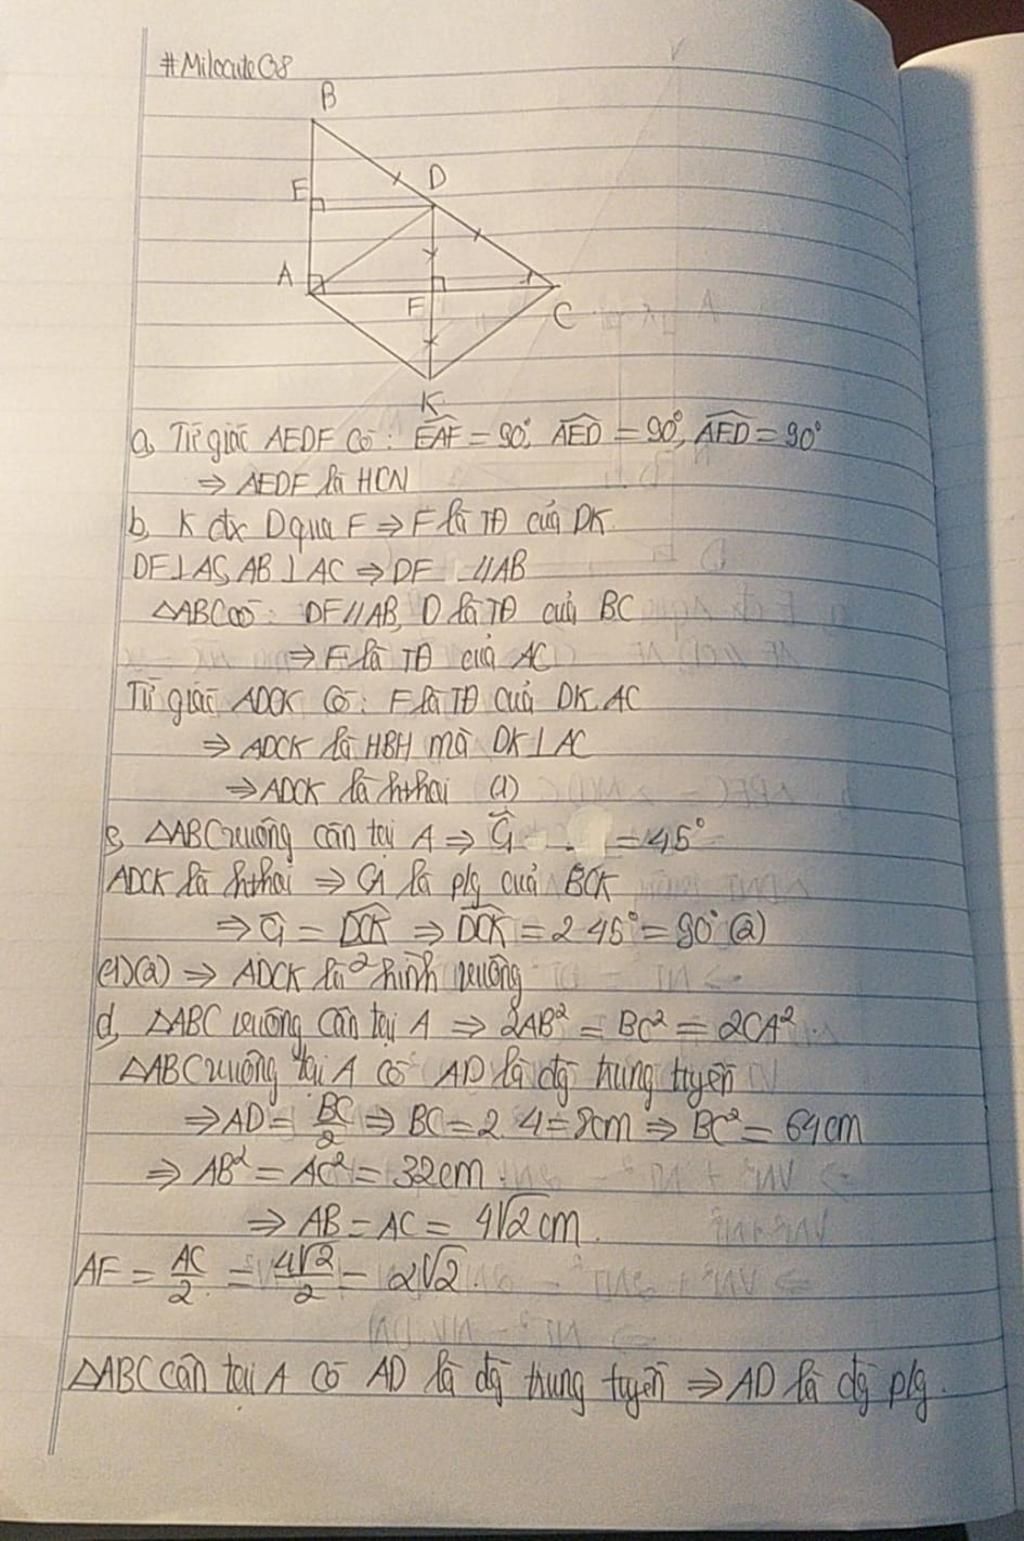 #Milocute08
B
E
D
A
F
C
K
a, Tứ giác AEDF có: EAF = 90°, AED = 90°, AFD = 90°
⇒ AEDF là HCN
b, K đx D qua F ⇒ F là TĐ của DK.
DF⊥AC, AB⊥AC ⇒ DF //AB
△ABC có: DF//AB, D là TĐ của BC
⇒ F là TĐ của AC
Tứ giác ADCK có: F là TĐ của DK, AC
⇒ ADCK là HBH mà DK⊥AC
⇒ ADCK là hthoi (1)
c, △ABC vuông cân tại A ⇒ C₁ = 45°
ADCK là hthoi ⇒ CA là plg của BCK
⇒ C₁ = DCK ⇒ DCK = 2.45° = 90° (2)
(1)(2) ⇒ ADCK là hình vuông
d, △ABC vuông cân tại A ⇒ 2AB² = BC² = 2CA².
△ABC vuông tại A có AD là đg trung tuyến
⇒ AD = BC/2 ⇒ BC = 2.4 = 8cm ⇒ BC² = 64cm
⇒ AB² = AC² = 32cm
⇒ AB = AC = 4√2 cm.
AF = AC/2 = 4√2/2 = 2√2.
△ABC cân tại A có AD là đg trung tuyến ⇒ AD là đg plg.